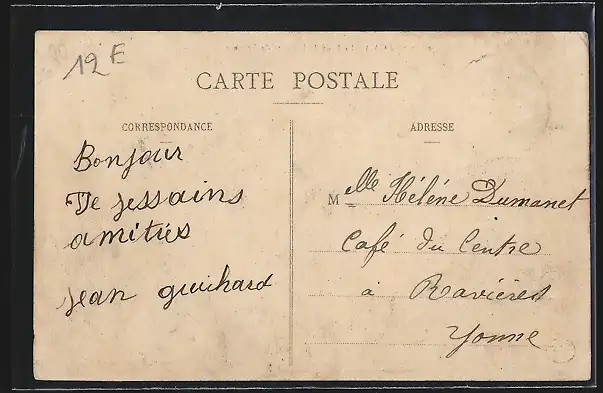 12 E
CARTE POSTALE
CORRESPONDANCE
Bonjour
De Jessains
amitiés
Jean Guichard
ADRESSE
Melle Hélène Dumanet
Café du Centre
à Ravières
Yonne